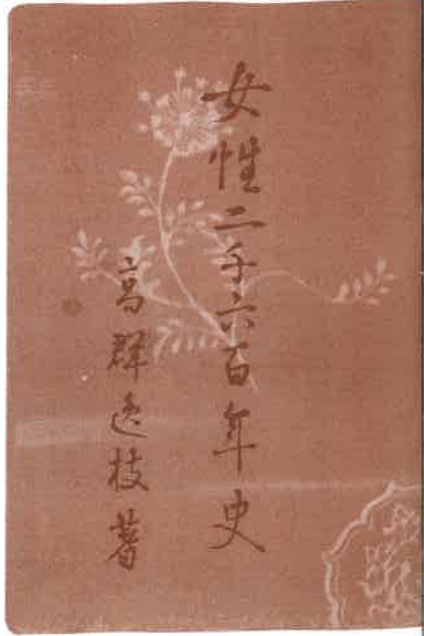 女性二千六百年史
高群逸枝著